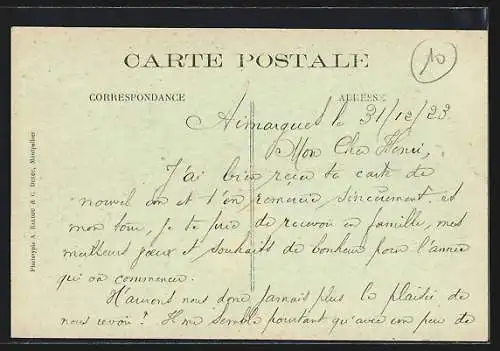 10
CARTE POSTALE
CORRESPONDANCE
ADRESSE
Aimargues le 31/12/23
Mon Cher Henri,
J'ai bien reçu ta carte de
nouvel an et t'en remercie sincèrement. et
mon tour, je te prie de recevoir en famille, mes
meilleurs vœux et souhaits de bonheur pour l'année
qui va commencer.
N'aurons nous donc jamais plus le plaisir de
nous revoir? Il me semble pourtant qu'avec un peu de
Phototypie A. Montpellier